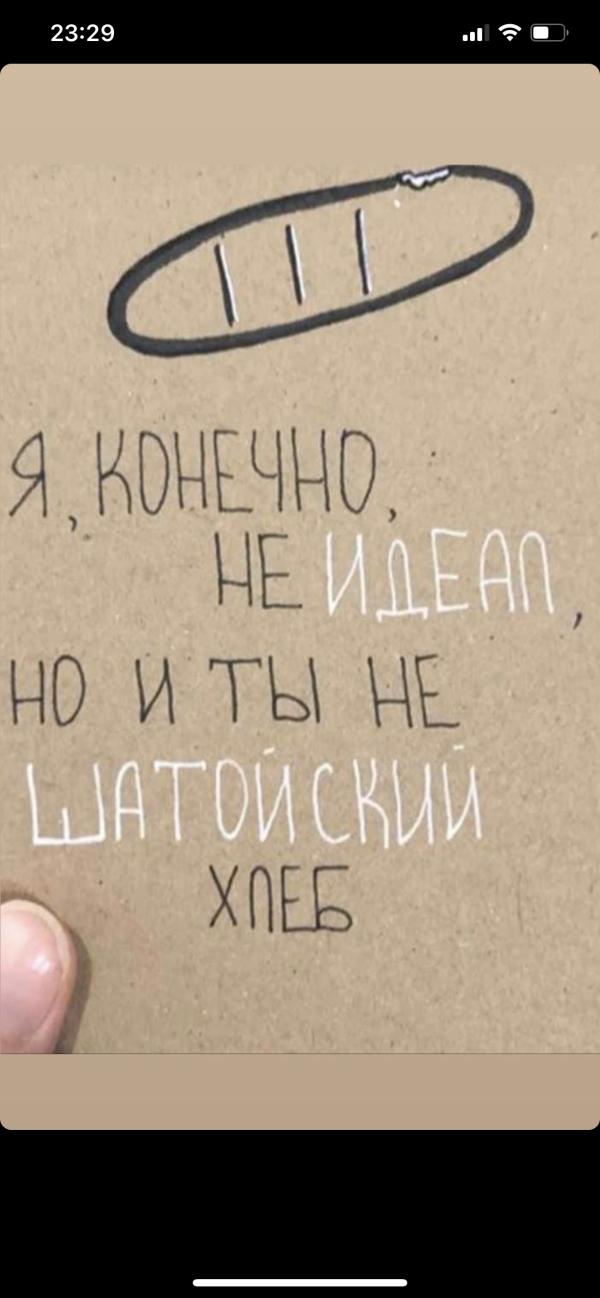 23:29
Я, КОНЕЧНО,
НЕ ИДЕАЛ,
НО И ТЫ НЕ
ШАТОЙСКИЙ
ХЛЕБ